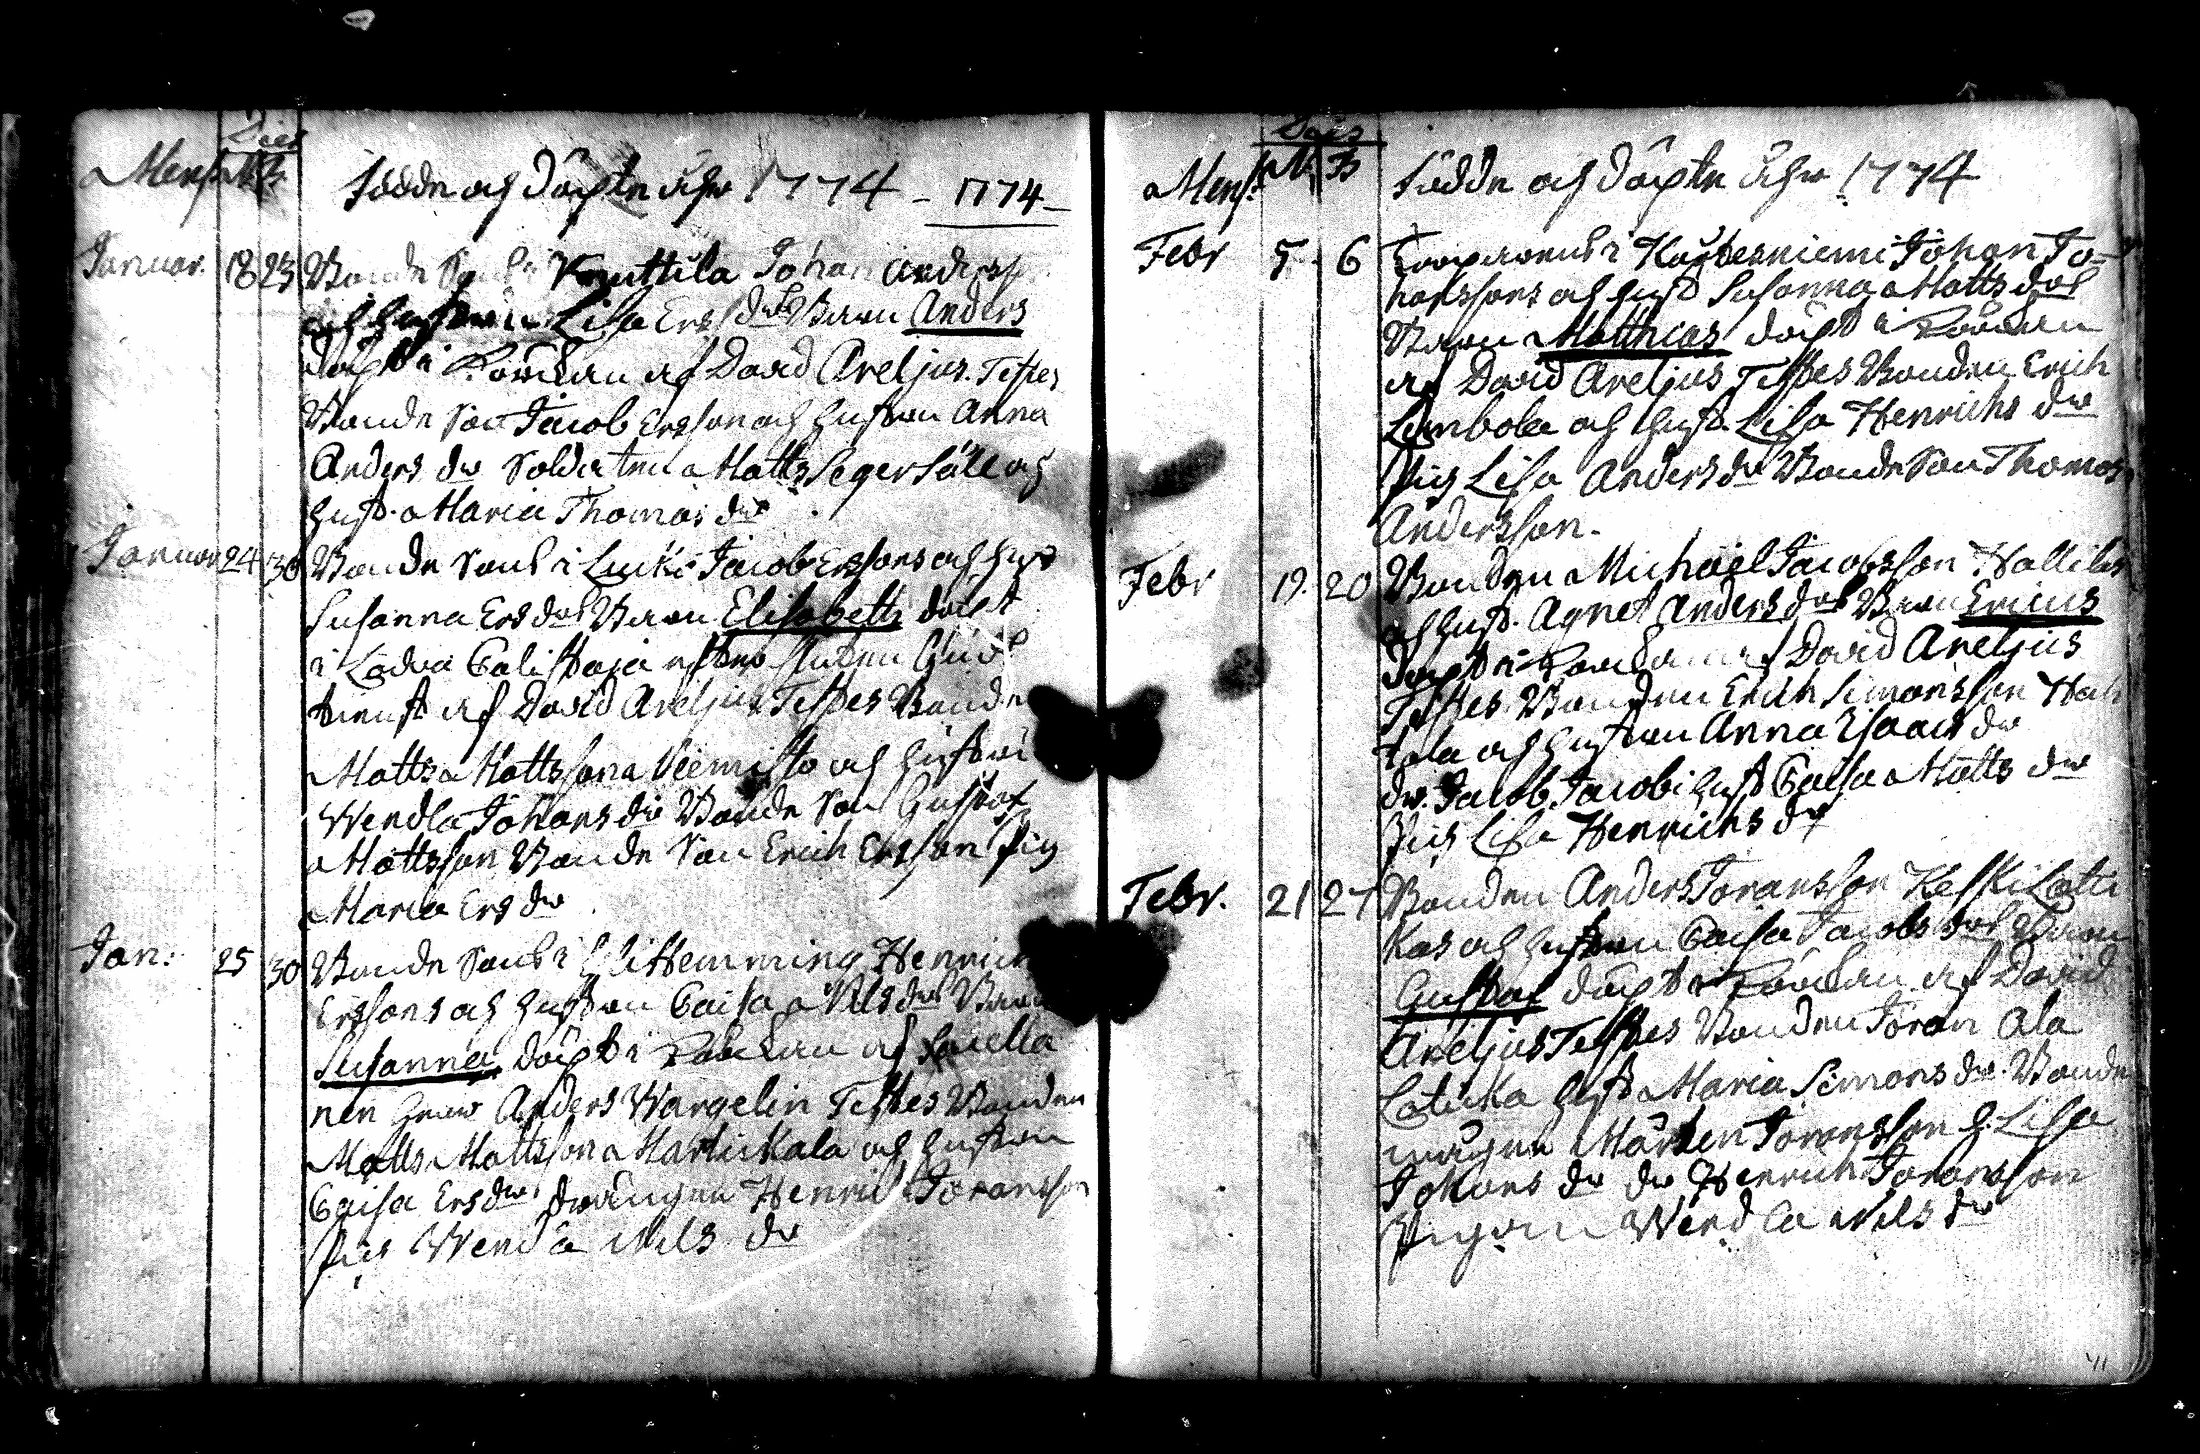 Dies
Mens. N. B.
Födde och döpte åhr 1774 - 1774 -
Januar. 18 23 Bonde Sons i Knuttila Johan Anders
och hustruns Lisa Ers drs Barn Anders
döpt i af David Areljus. Testes
Bonde Son Jacob Ersson och hustrun Anna
Anders dr Soldaten Matts Segersäll och
hust. Maria Thomas dr
Januar 24 30 Bonde Sons i Lucki Jacob Erssons och hust
Susanna Ers drs Barn Elisabeth döpt
i efter sluten Guds
tienst af David Areljus Testes Bonde
Matts Mattsson Niemisto och hustru
Wendla Johans dr Bonde Son Gustaf
Mattsson Bonde Son Erich Ersson Pig
Maria Ers dr
Jan: 25 30 Bonde Sons i Henric
Erssons och hustrun Caisa Nils drs Barn
Susanna, döpt i af
nen Anders Wargelin Testes Bonden
Matts Mattsson Martickala och hustrun
Caisa Ers dr drängen Henric Joransson
Pig Wendla Nils dr
Dies
Mens. N. B
Födde och döpte åhr 1774
Febr 5 6 i Johan Jo-
hanssons och hust Susanna Matts drs
Barn Matthias döpt i
af David Areljus Testes Bonden Erich
Lembola och hust Lisa Henrichs dr
Pig Lisa Anders dr Bonde Son Thomas
Andersson.
Febr 19. 20 Bonden Michael Jacobsson Hallila
och hust. Agnet Anders drs Barn Ericus
döpt i af David Areljus
Testes Bonden Erich Simonsson Hah
tala och hustrun Anna Isaacs dr
dr. Jacob Jacobi hust Caisa Matts dr
Pig Lisa Henrichs dr
Febr. 21 27 Bonden Anders Joransson Keski Latu
kas och hustrun Caisa Jacobs drs Barn
Gustaf döpt i af David
Areljus Testes Bonden Joran Ala
Latucka hust Maria Simons dr. Bonde
mågen Mårten Joransson h. Lisa
Johans dr dr Henrich Joransson
Pigan Wendla Nils dr